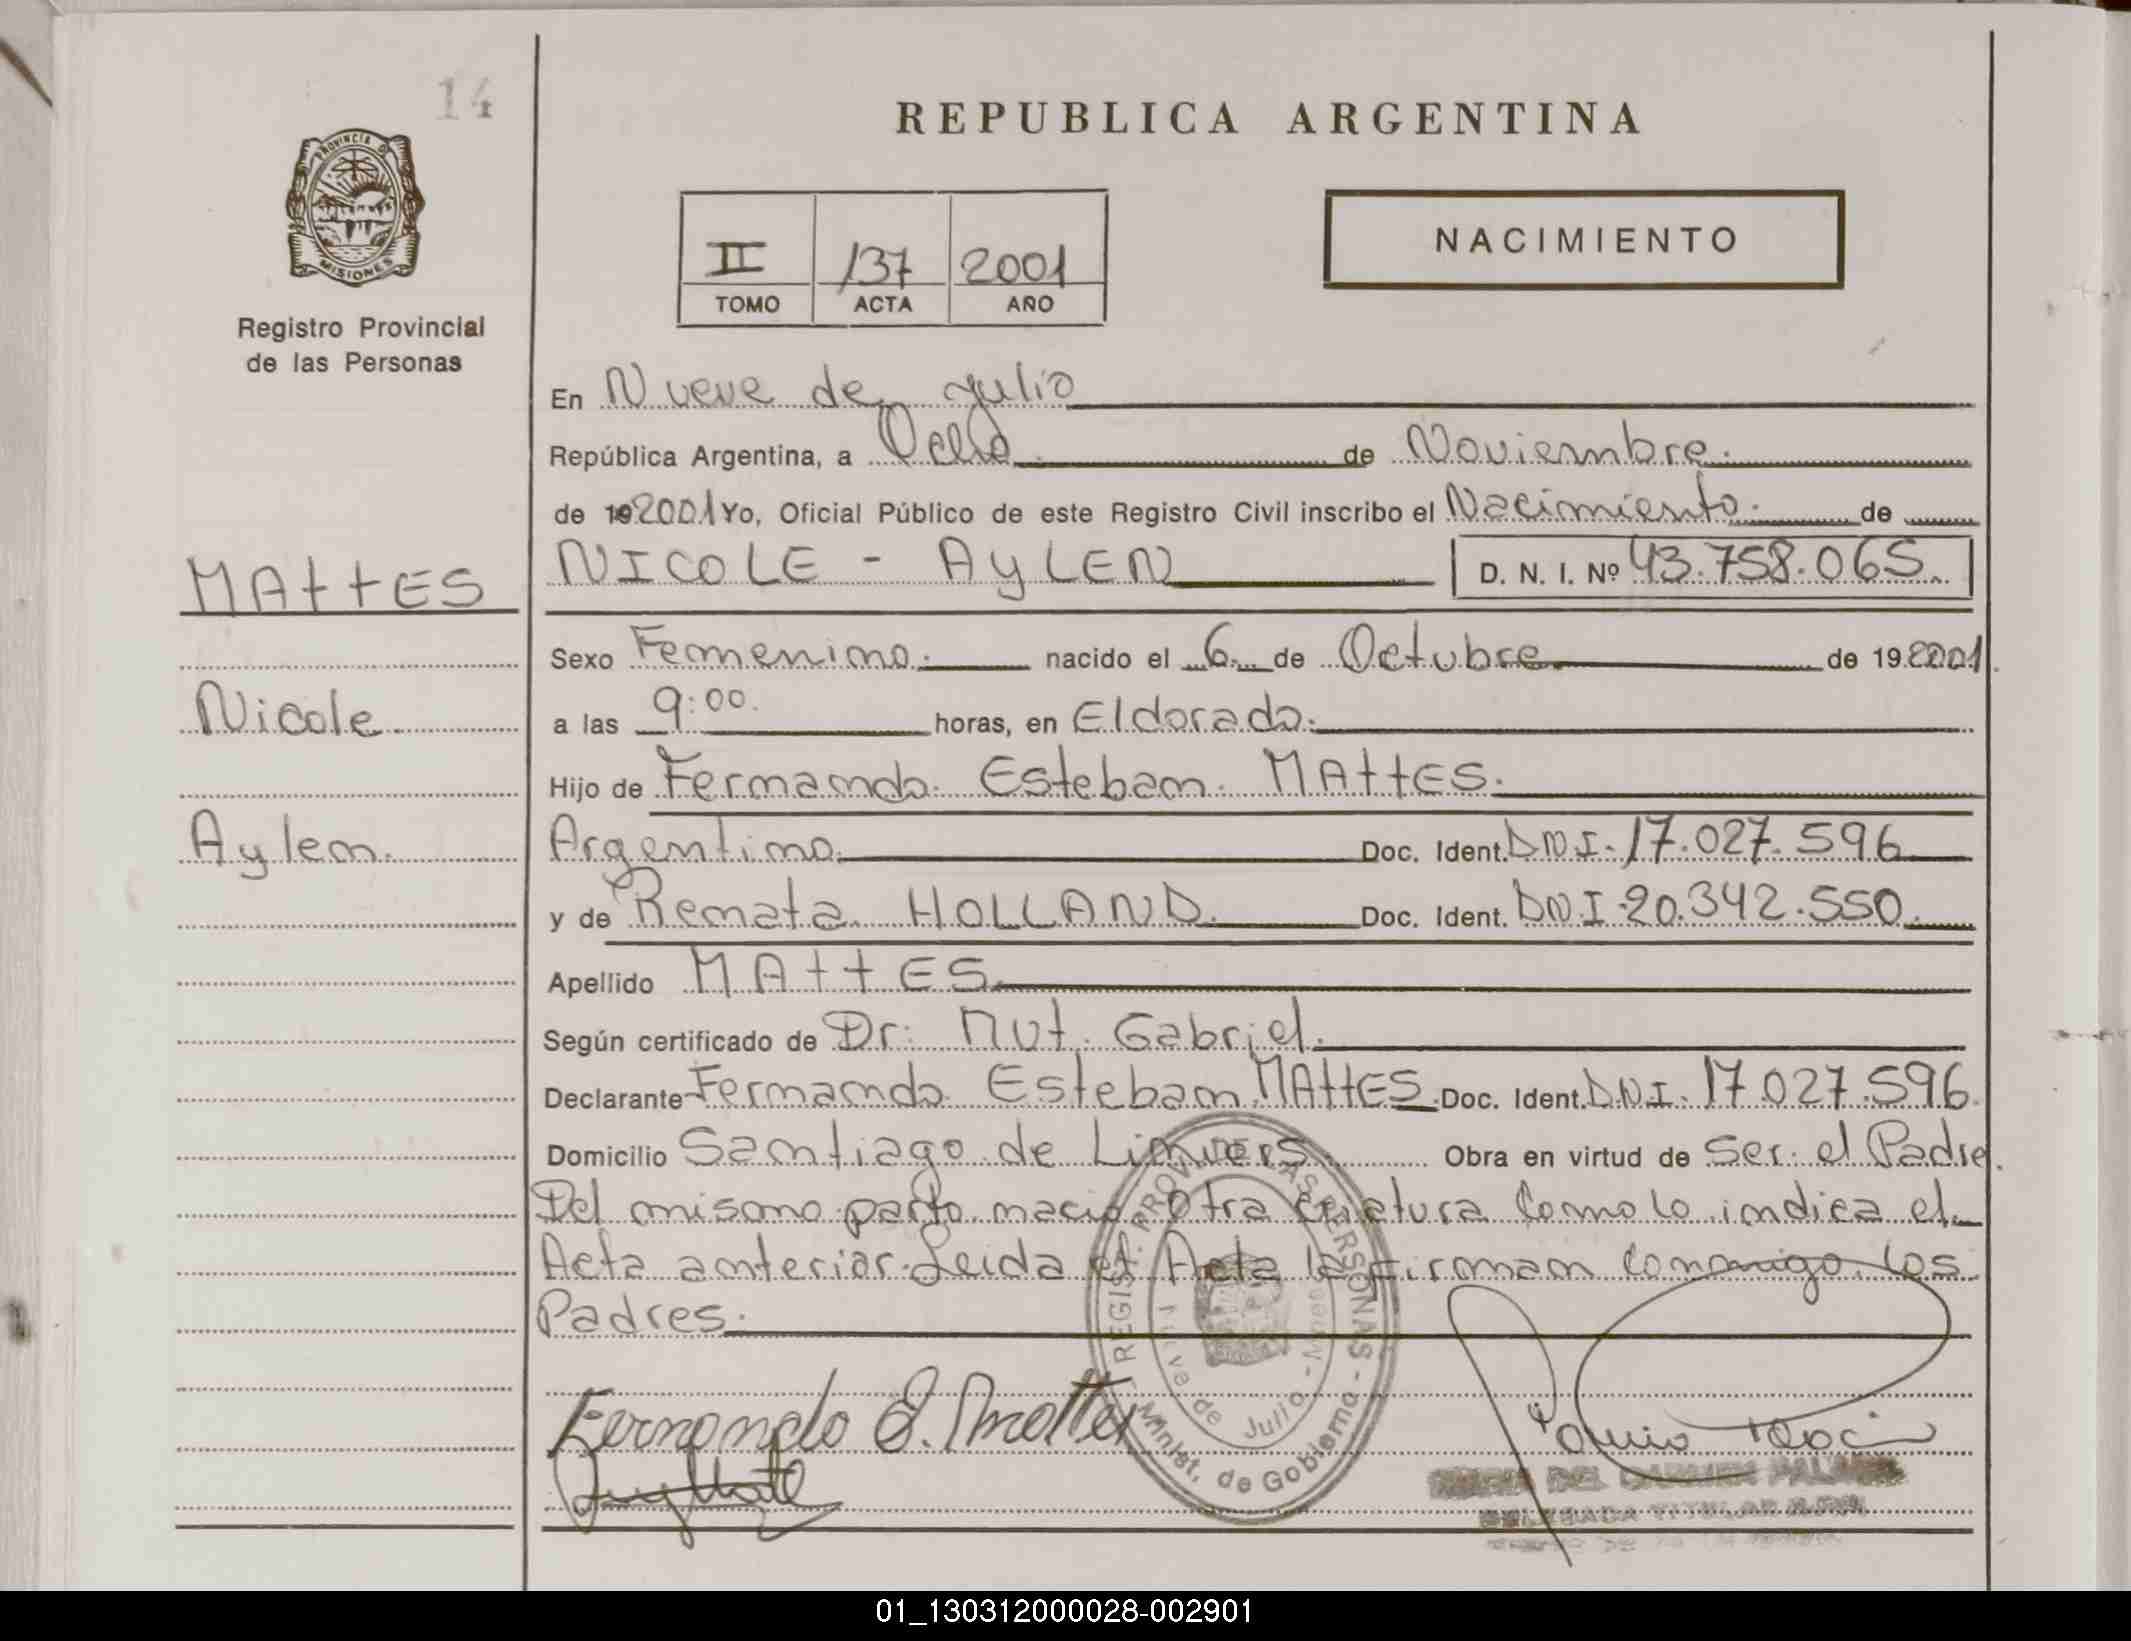 14
REPUBLICA ARGENTINA
PROVINCIA DE
MISIONES
Registro Provincial
de las Personas
II 137 2001
TOMO ACTA AÑO
NACIMIENTO
En Nueve de Julio
República Argentina, a Ocho de Noviembre.
de 192001 Yo, Oficial Público de este Registro Civil inscribo el Nacimiento. de
MAttES
NICOLE - AyLEN D. N. I. Nº 43.758.065
Sexo Femenino. nacido el 6 de Octubre de 192001.
Nicole
a las 9:00. horas, en Eldorado.
Hijo de Fernando Esteban MAttES.
Aylen.
Argentino. Doc. Ident. DNI. 17.027.596
y de Renata HOLLAND. Doc. Ident. DNI 20.342.550.
Apellido MAttES
Según certificado de Dr: Mut, Gabriel.
Declarante Fernando Esteban MAttES. Doc. Ident. DNI. 17.027.596.
Domicilio Santiago de Liniers Obra en virtud de Ser el Padre.
Del mismo parto nació otra criatura como lo indica el
Acta anterior. Leida el Acta la firman conmigo los
Padres.
REGIST. PROV. LAS PERSONAS - Minist. de Gobierno -
Nueve de Julio - Mnes
Fernando E. Mattes
DEL CARMEN
DELEGADA TITULAR
01_130312000028-002901